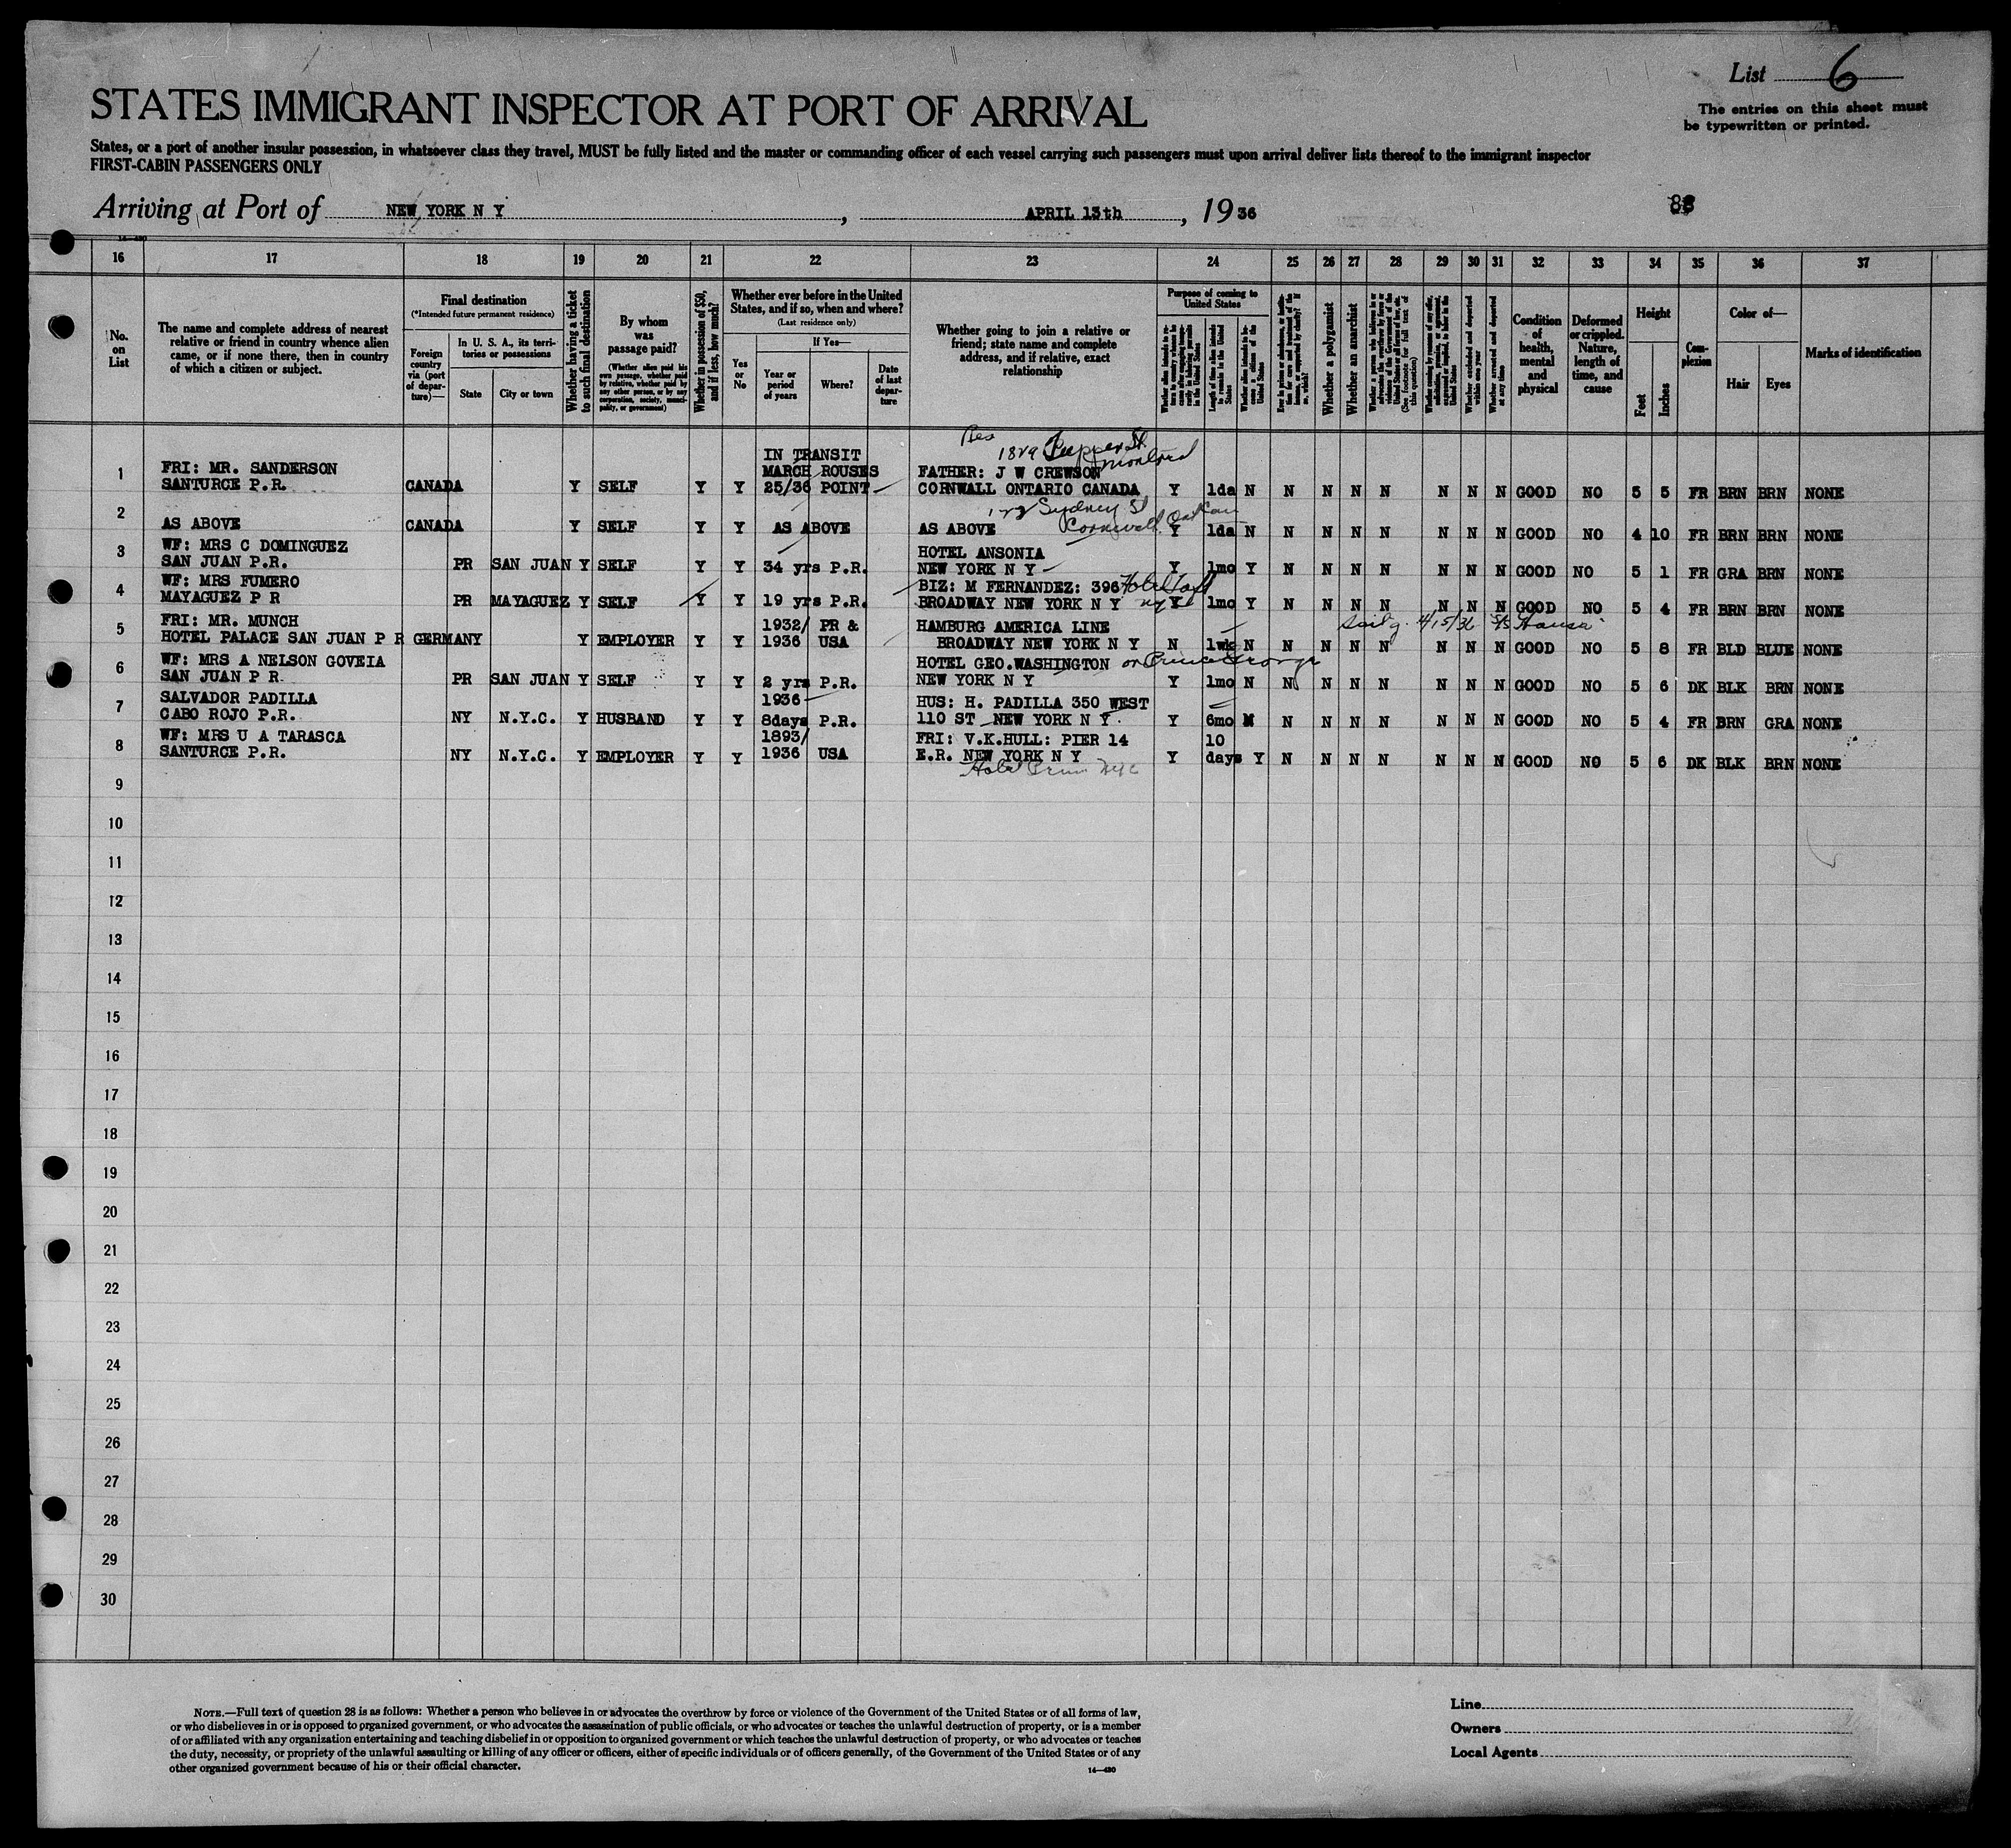 List 6
The entries on this sheet must
be typewritten or printed.
STATES IMMIGRANT INSPECTOR AT PORT OF ARRIVAL
States, or a port of another insular possession, in whatsoever class they travel, MUST be fully listed and the master or commanding officer of each vessel carrying such passengers must upon arrival deliver lists thereof to the immigrant inspector
FIRST-CABIN PASSENGERS ONLY
Arriving at Port of NEW YORK N Y, APRIL 13th, 1936
14—430
16 17 18 19 20 21 22 23 24 25 26 27 28 29 30 31 32 33 34 35 36 37
No. on List
The name and complete address of nearest relative or friend in country whence alien came, or if none there, then in country of which a citizen or subject.
Final destination
(*Intended future permanent residence)
Foreign country via (port of departure)—
In U. S. A., its territories or possessions
State
City or town
Whether having a ticket to such final destination
By whom was passage paid?
(Whether alien paid his own passage, whether paid by relative, whether paid by any other person, or by any corporation, society, municipality, or government)
Whether in possession of $50, and if less, how much?
Whether ever before in the United States, and if so, when and where?
(Last residence only)
Yes or No
If Yes—
Year or period of years
Where?
Date of last departure
Whether going to join a relative or friend; state name and complete address, and if relative, exact relationship
Purpose of coming to United States
Length of time alien intends to remain in the United States
Whether alien intends to become a citizen of the United States
Whether a polygamist
Whether an anarchist
Whether arrested and deported within one year
Whether arrested and deported at any time
Condition of health, mental and physical
Deformed or crippled. Nature, length of time, and cause
Height
Feet
Inches
Complexion
Color of—
Hair
Eyes
Marks of identification
1829 St. Montreal
IN TRANSIT
1 FRI: MR. SANDERSON MARCH ROUSES FATHER: J W CREWSON
SANTURCE P.R. CANADA Y SELF Y Y 25/36 POINT CORNWALL ONTARIO CANADA Y 1da N N N N N N N N GOOD NO 5 5 FR BRN BRN NONE
Sydney St
Cornwall Ont Can
2 AS ABOVE CANADA Y SELF Y Y AS ABOVE AS ABOVE Y 1da N N N N N N N N GOOD NO 4 10 FR BRN BRN NONE
3 WF: MRS C DOMINGUEZ HOTEL ANSONIA
SAN JUAN P.R. PR SAN JUAN Y SELF Y Y 34 yrs P.R. NEW YORK N Y Y 1mo Y N N N N N N N GOOD NO 5 1 FR GRA BRN NONE
4 WF: MRS FUMERO BIZ: M FERNANDEZ: 396 Hotel Taft
MAYAGUEZ P R PR MAYAGUEZ Y SELF Y Y 19 yrs P.R. BROADWAY NEW YORK N Y Y 1mo Y N N N N N N N GOOD NO 5 4 FR BRN BRN NONE
5 FRI: MR. MUNCH 1932/ PR & HAMBURG AMERICA LINE Sailg. 4/15/36 S/S Hansa
HOTEL PALACE SAN JUAN P R GERMANY Y EMPLOYER Y Y 1936 USA BROADWAY NEW YORK N Y N 1wk N N N N N N N N GOOD NO 5 8 FR BLD BLUE NONE
6 WF: MRS A NELSON GOVEIA HOTEL GEO.WASHINGTON or Prince George
SAN JUAN P R PR SAN JUAN Y SELF Y Y 2 yrs P.R. NEW YORK N Y Y 1mo N N N N N N N N GOOD NO 5 6 DK BLK BRN NONE
7 SALVADOR PADILLA 1936 HUS: H. PADILLA 350 WEST
CABO ROJO P.R. NY N.Y.C. Y HUSBAND Y Y 8days P.R. 110 ST NEW YORK N Y. Y 6mo N N N N N N N GOOD NO 5 4 FR BRN GRA NONE
8 WF: MRS U A TARASCA 1893/ FRI: V.K.HULL: PIER 14 10
SANTURCE P.R. NY N.Y.C. Y EMPLOYER Y Y 1936 USA E.R. NEW YORK N Y Y days Y N N N N N N N GOOD NO 5 6 DK BLK BRN NONE
9
10
11
12
13
14
15
16
17
18
19
20
21
22
23
24
25
26
27
28
29
30
NOTE.—Full text of question 28 is as follows: Whether a person who believes in or advocates the overthrow by force or violence of the Government of the United States or of all forms of law,
or who disbelieves in or is opposed to organized government, or who advocates the assassination of public officials, or who advocates or teaches the unlawful destruction of property, or is a member
of or affiliated with any organization entertaining and teaching disbelief in or opposition to organized government or which teaches the unlawful destruction of property, or who advocates or teaches
the duty, necessity, or propriety of the unlawful assaulting or killing of any officer or officers, either of specific individuals or of officers generally, of the Government of the United States or of any
other organized government because of his or their official character.
14—430
Line
Owners
Local Agents